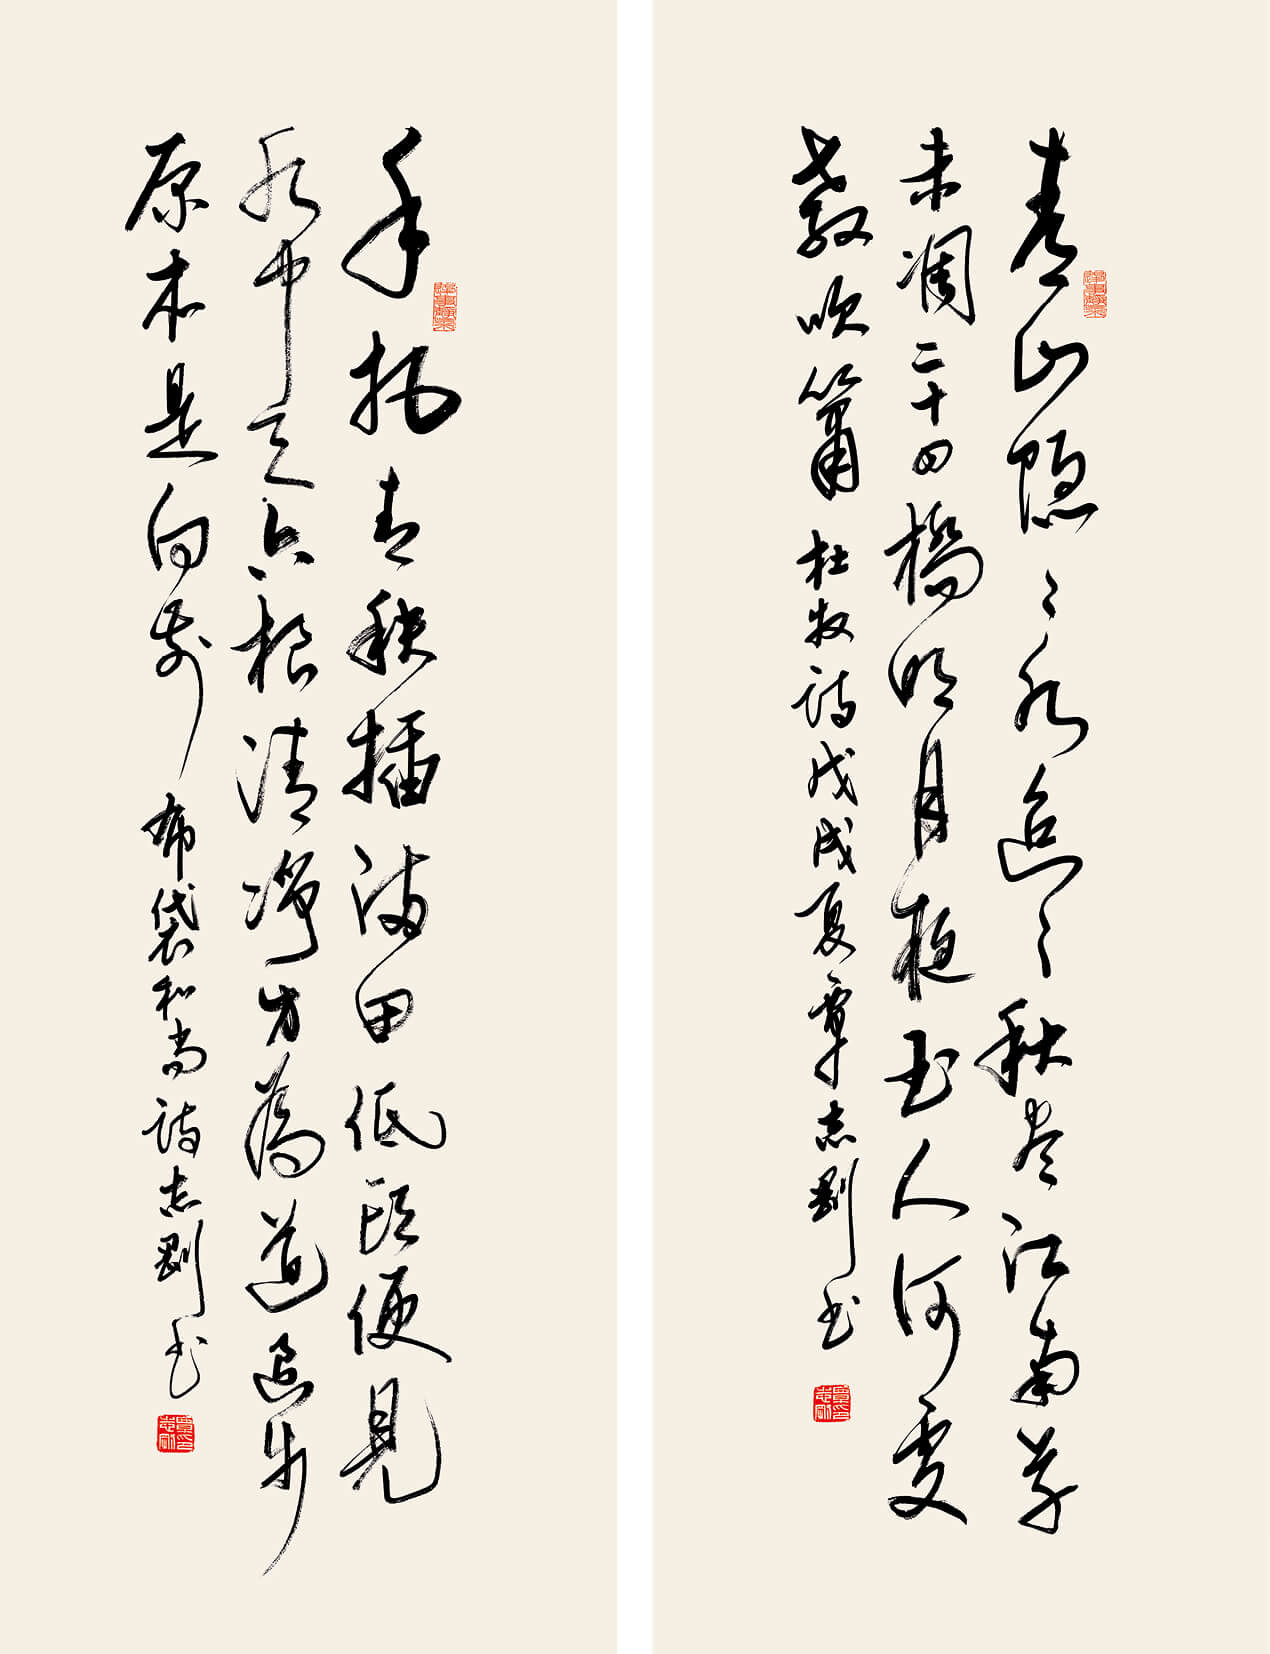 青山隐々水迢々秋尽江南草
未凋二十四橋明月夜玉人何處
教吹箫 杜牧诗戊戌夏覃志刚书
手把青秧插满田低头便見
水中天六根清净方為道退步
原来是向前 布袋和尚诗志刚书